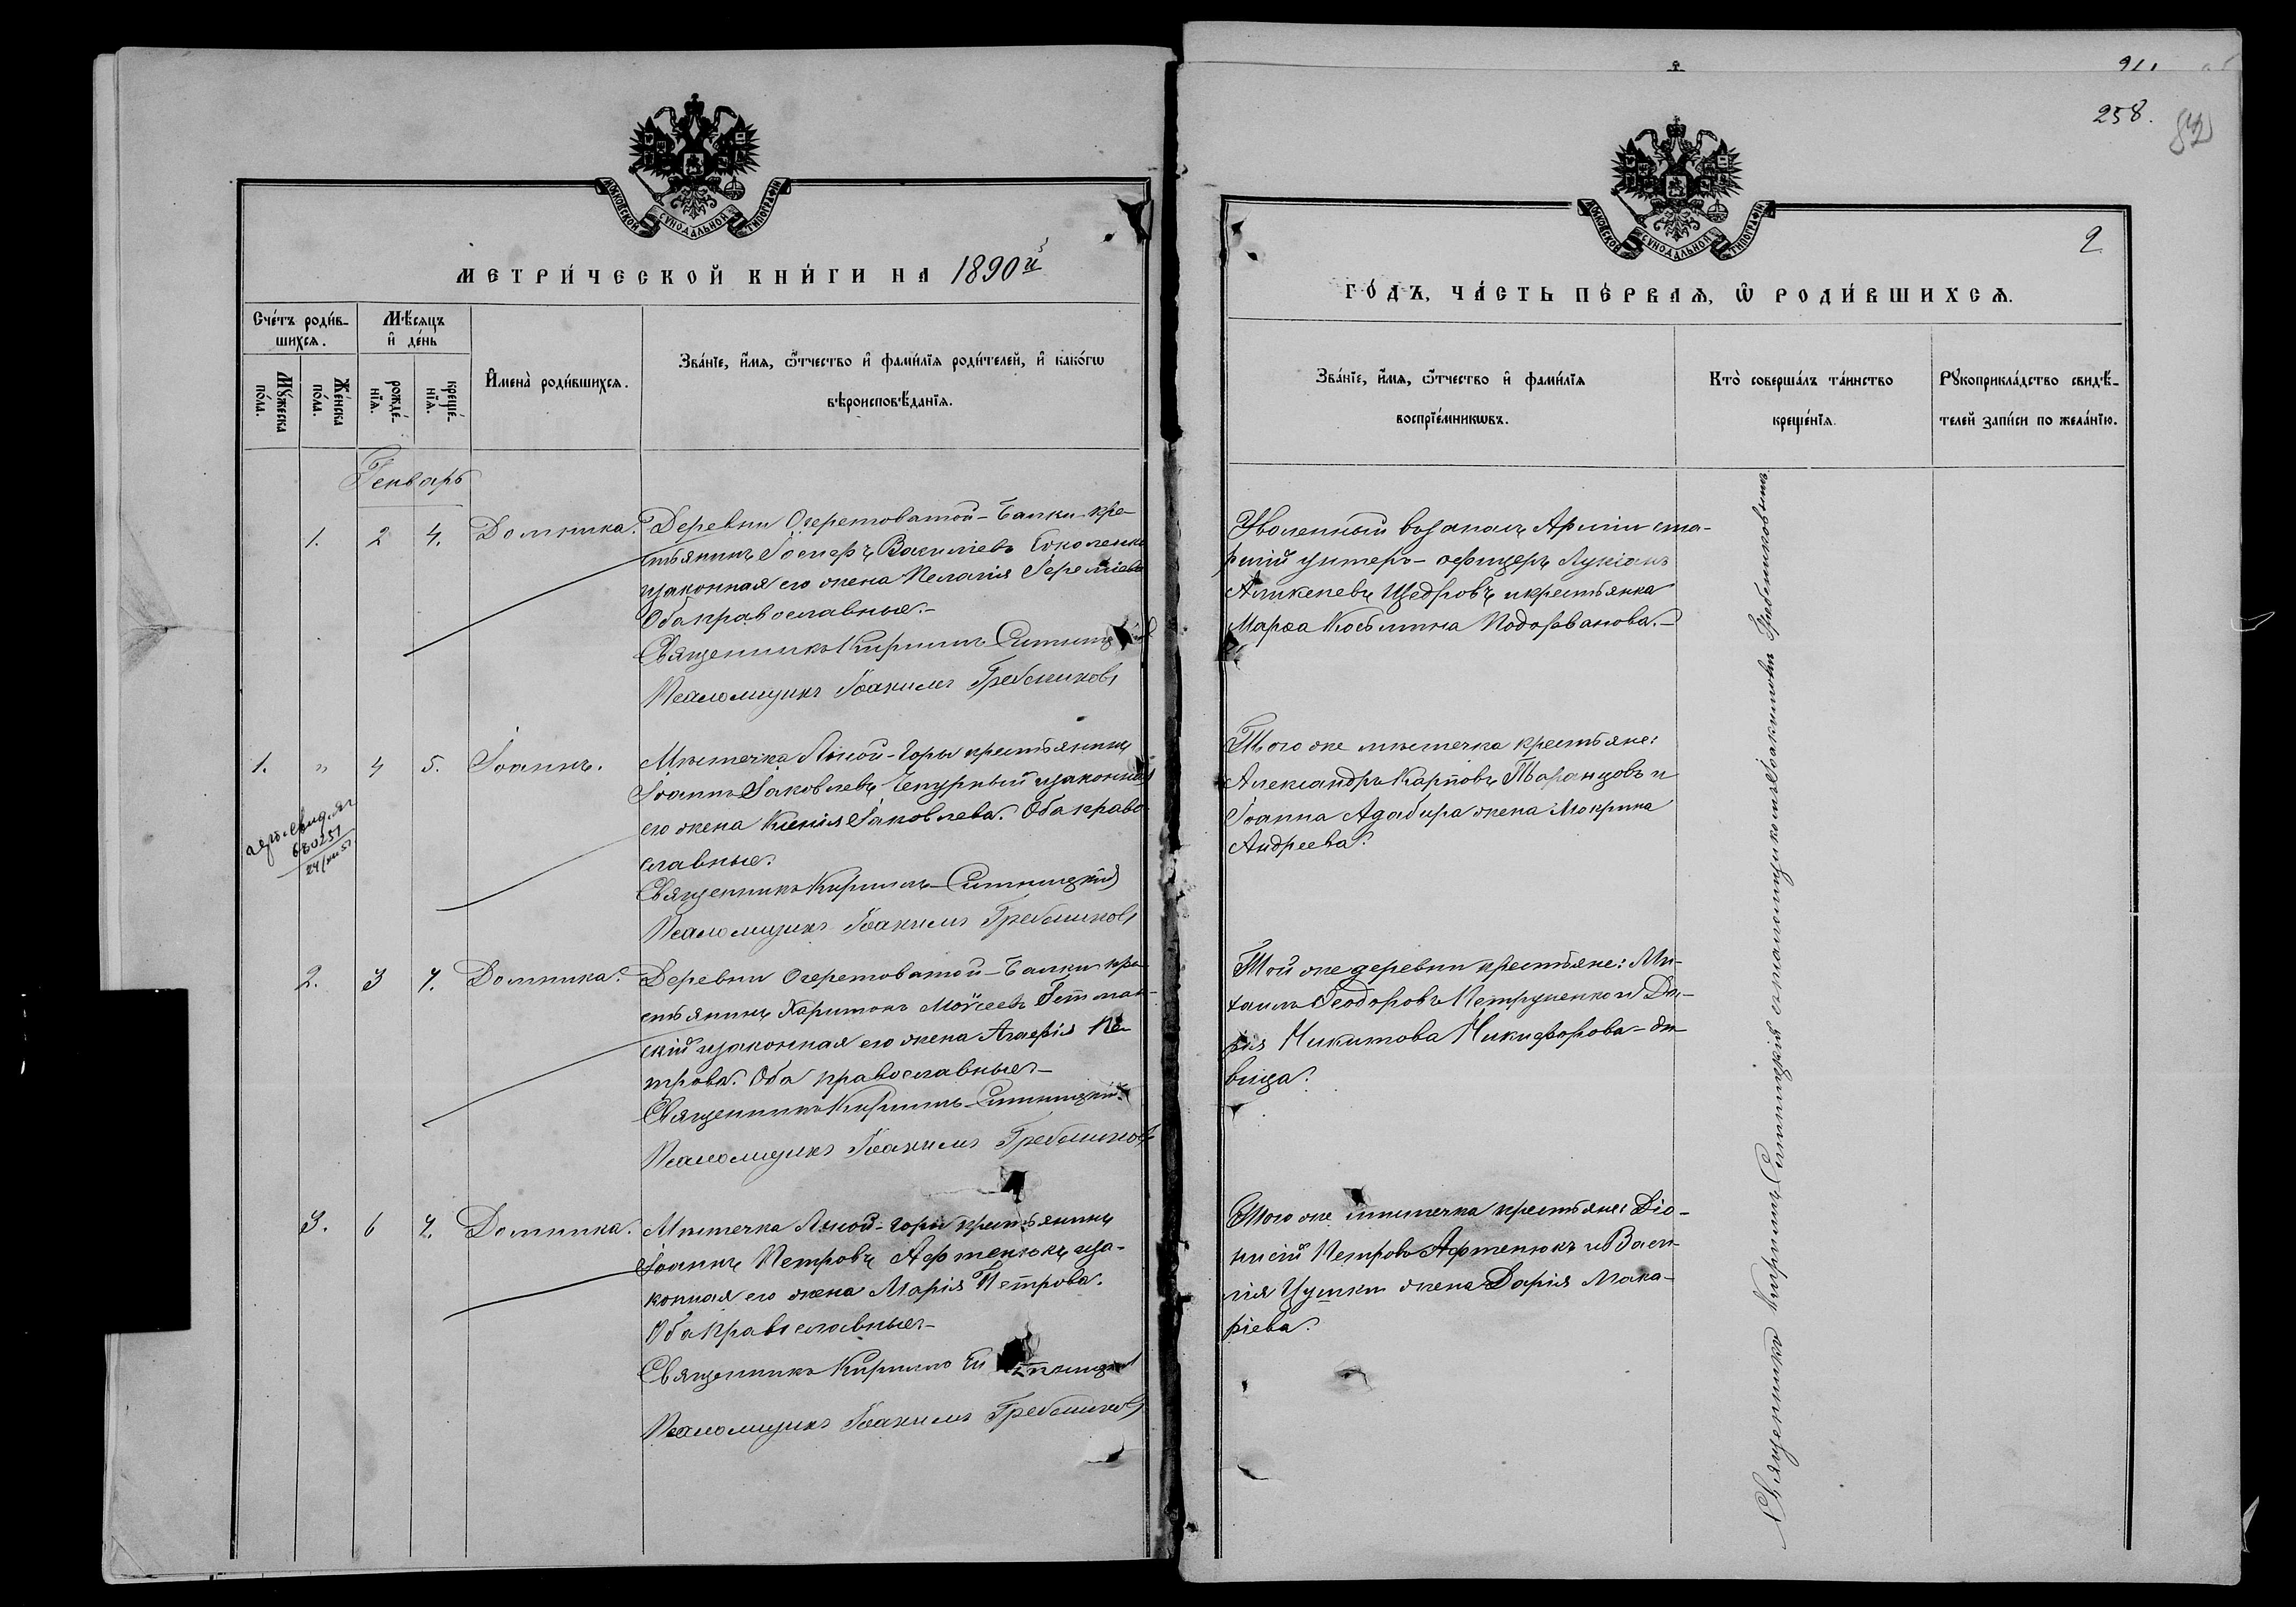 МОСКОВСКОЙ СѴНОДАЛЬНОЙ ТИПОГРАФІИ
МЕТРИ́ЧЕСКОЙ КНИ́ГИ НА 1890й
Сче́тъ роди́в-
шихсѧ.
Мѣ́сѧцъ
и҆ де́нь
И҆мена̀ роди́вшихсѧ.
Зва́нїе, и҆́мѧ, ѻ҆́тчество и҆ фами́лїѧ роди́телей, и҆ како́гѡ
вѣроисповѣ́данїѧ.
Мꙋ́жеска
по́ла.
Же́нска
по́ла.
рожде́-
нїѧ.
креще́-
нїѧ.
Генварь
1. 2 4. Домника. Деревни Очеретоватой-Балки кре-
стьянинъ Іосифъ Василіевъ Соколенко
и законная его жена Пелагія Іереміева
Оба православные.-
Священникъ Кириллъ Ситницкій
Псаломщикъ Іоакимъ Гребенниковъ
1. „ 4 5. Іоаннъ. Мѣстечка Лысой-Горы крестьянинъ
Іоаннъ Іаковлевъ Чепурный и законная
его жена Ксенія Іаковлева. Оба право-
славные.
680251
Священникъ Кириллъ Ситницкій
Псаломщикъ Іоакимъ Гребенниковъ
2. 3 7. Домника. Деревни Очеретоватой-Балки кре-
стьянинъ Харитонъ Моѵсеевъ Гетман-
скій и законная его жена Агафія Пе-
трова. Оба православные-
Священникъ Кириллъ Ситницкій
Псаломщикъ Іоакимъ Гребенниковъ
3. 6 7. Домника. Мѣстечка Лысой-Горы крестьянинъ
Іоаннъ Петровъ Афтенюкъ и за-
конная его жена Марія Петрова.
Оба православные-
Священникъ Кириллъ Ситницкій
Псаломщикъ Іоакимъ Гребенниковъ
258.
МОСКОВСКОЙ СѴНОДАЛЬНОЙ ТИПОГРАФІИ
2
ГО́ДЪ, ЧА́СТЬ ПЕ́РВАѦ, Ѡ҆ РОДИ́ВШИХСѦ.
Зва́нїе, и҆́мѧ, ѻ҆́тчество и҆ фами́лїѧ
воспрїе́мникѡвъ.
Кто̀ соверша́лъ та́инство
креще́нїѧ.
Рꙋкоприкла́дство свидѣ́-
телей за́писи по жела́нїю.
Уволенный въ запасъ Арміи ста-
ршій унтеръ-офицеръ Лукіанъ
Щедровъ и крестьянка
Марѳа Косьмина Подорванова.-
Того же мѣстечка крестьяне:
Александръ Карповъ Таранцовъ и
Іоанна Адабира жена Мокрина
Андреева.
Той же деревни крестьяне: Ми-
хаилъ Ѳеодоровъ Петрушенко и Да-
рія Никитова Никифорова-дѣ-
вица.
Того же мѣстечка крестьяне: Діо-
нисій Петровъ Афтенюкъ и Васи-
лія Цушки жена Дарія Мака-
ріева.
Священникъ Кириллъ Ситницкій съ псаломщикомъ Іоакимомъ Гребенниковымъ